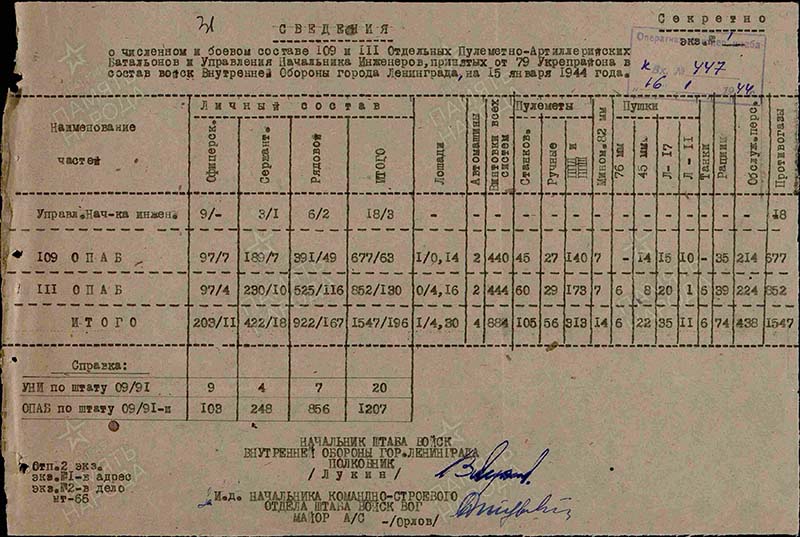 31
СВЕДЕНИЯ
Секретно
экз.№ 1
о численном и боевом составе 109 и III Отдельных Пулеметно-Артиллерийских
Батальонов и Управления Начальника Инженеров, принятых от 79 Укрепрайона в
состав войск Внутренней Обороны города Ленинграда, на 15 января 1944 года.
Вх. № 447
16 I 1944
Наименование частей
Личный состав
Офицерск.
Сержант.
Рядовой
ИТОГО
Лошади
Автомашины
Винтовки всех систем
Пулеметы
Станков.
Ручные
Мином. 82 мм
Пушки
76 мм
45 мм
Л-17
Л-II
Танки
Рации
Обслуж. перс.
Противогазы
Управл.Нач-ка инжен. 9/- 3/I 6/2 18/3 - - - - - - - - - - - - - - 18
109 ОПАБ 97/7 189/7 391/49 677/63 I/0,14 2 440 45 27 140 7 - 14 15 10 - 35 214 677
III ОПАБ 97/4 230/10 525/116 852/130 0/4,16 2 444 60 29 173 7 6 8 20 I 6 39 224 852
ИТОГО 203/II 422/18 922/167 1547/196 I/4,30 4 884 105 56 313 14 6 22 35 II 6 74 438 1547
Справка:
УНИ по штату 09/91 9 4 7 20
ОПАБ по штату 09/91-и 103 248 856 1207
НАЧАЛЬНИК ШТАБА ВОЙСК
ВНУТРЕННЕЙ ОБОРОНЫ ГОР.ЛЕНИНГРАДА
ПОЛКОВНИК
/Лукин/
Отп.2 экз.
экз.№1-в адрес
экз.№2-в дело
мт-66
И.д. НАЧАЛЬНИКА КОМАНДНО-СТРОЕВОГО
ОТДЕЛА ШТАБА ВОЙСК ВОГ
МАЙОР А/С -/Орлов/